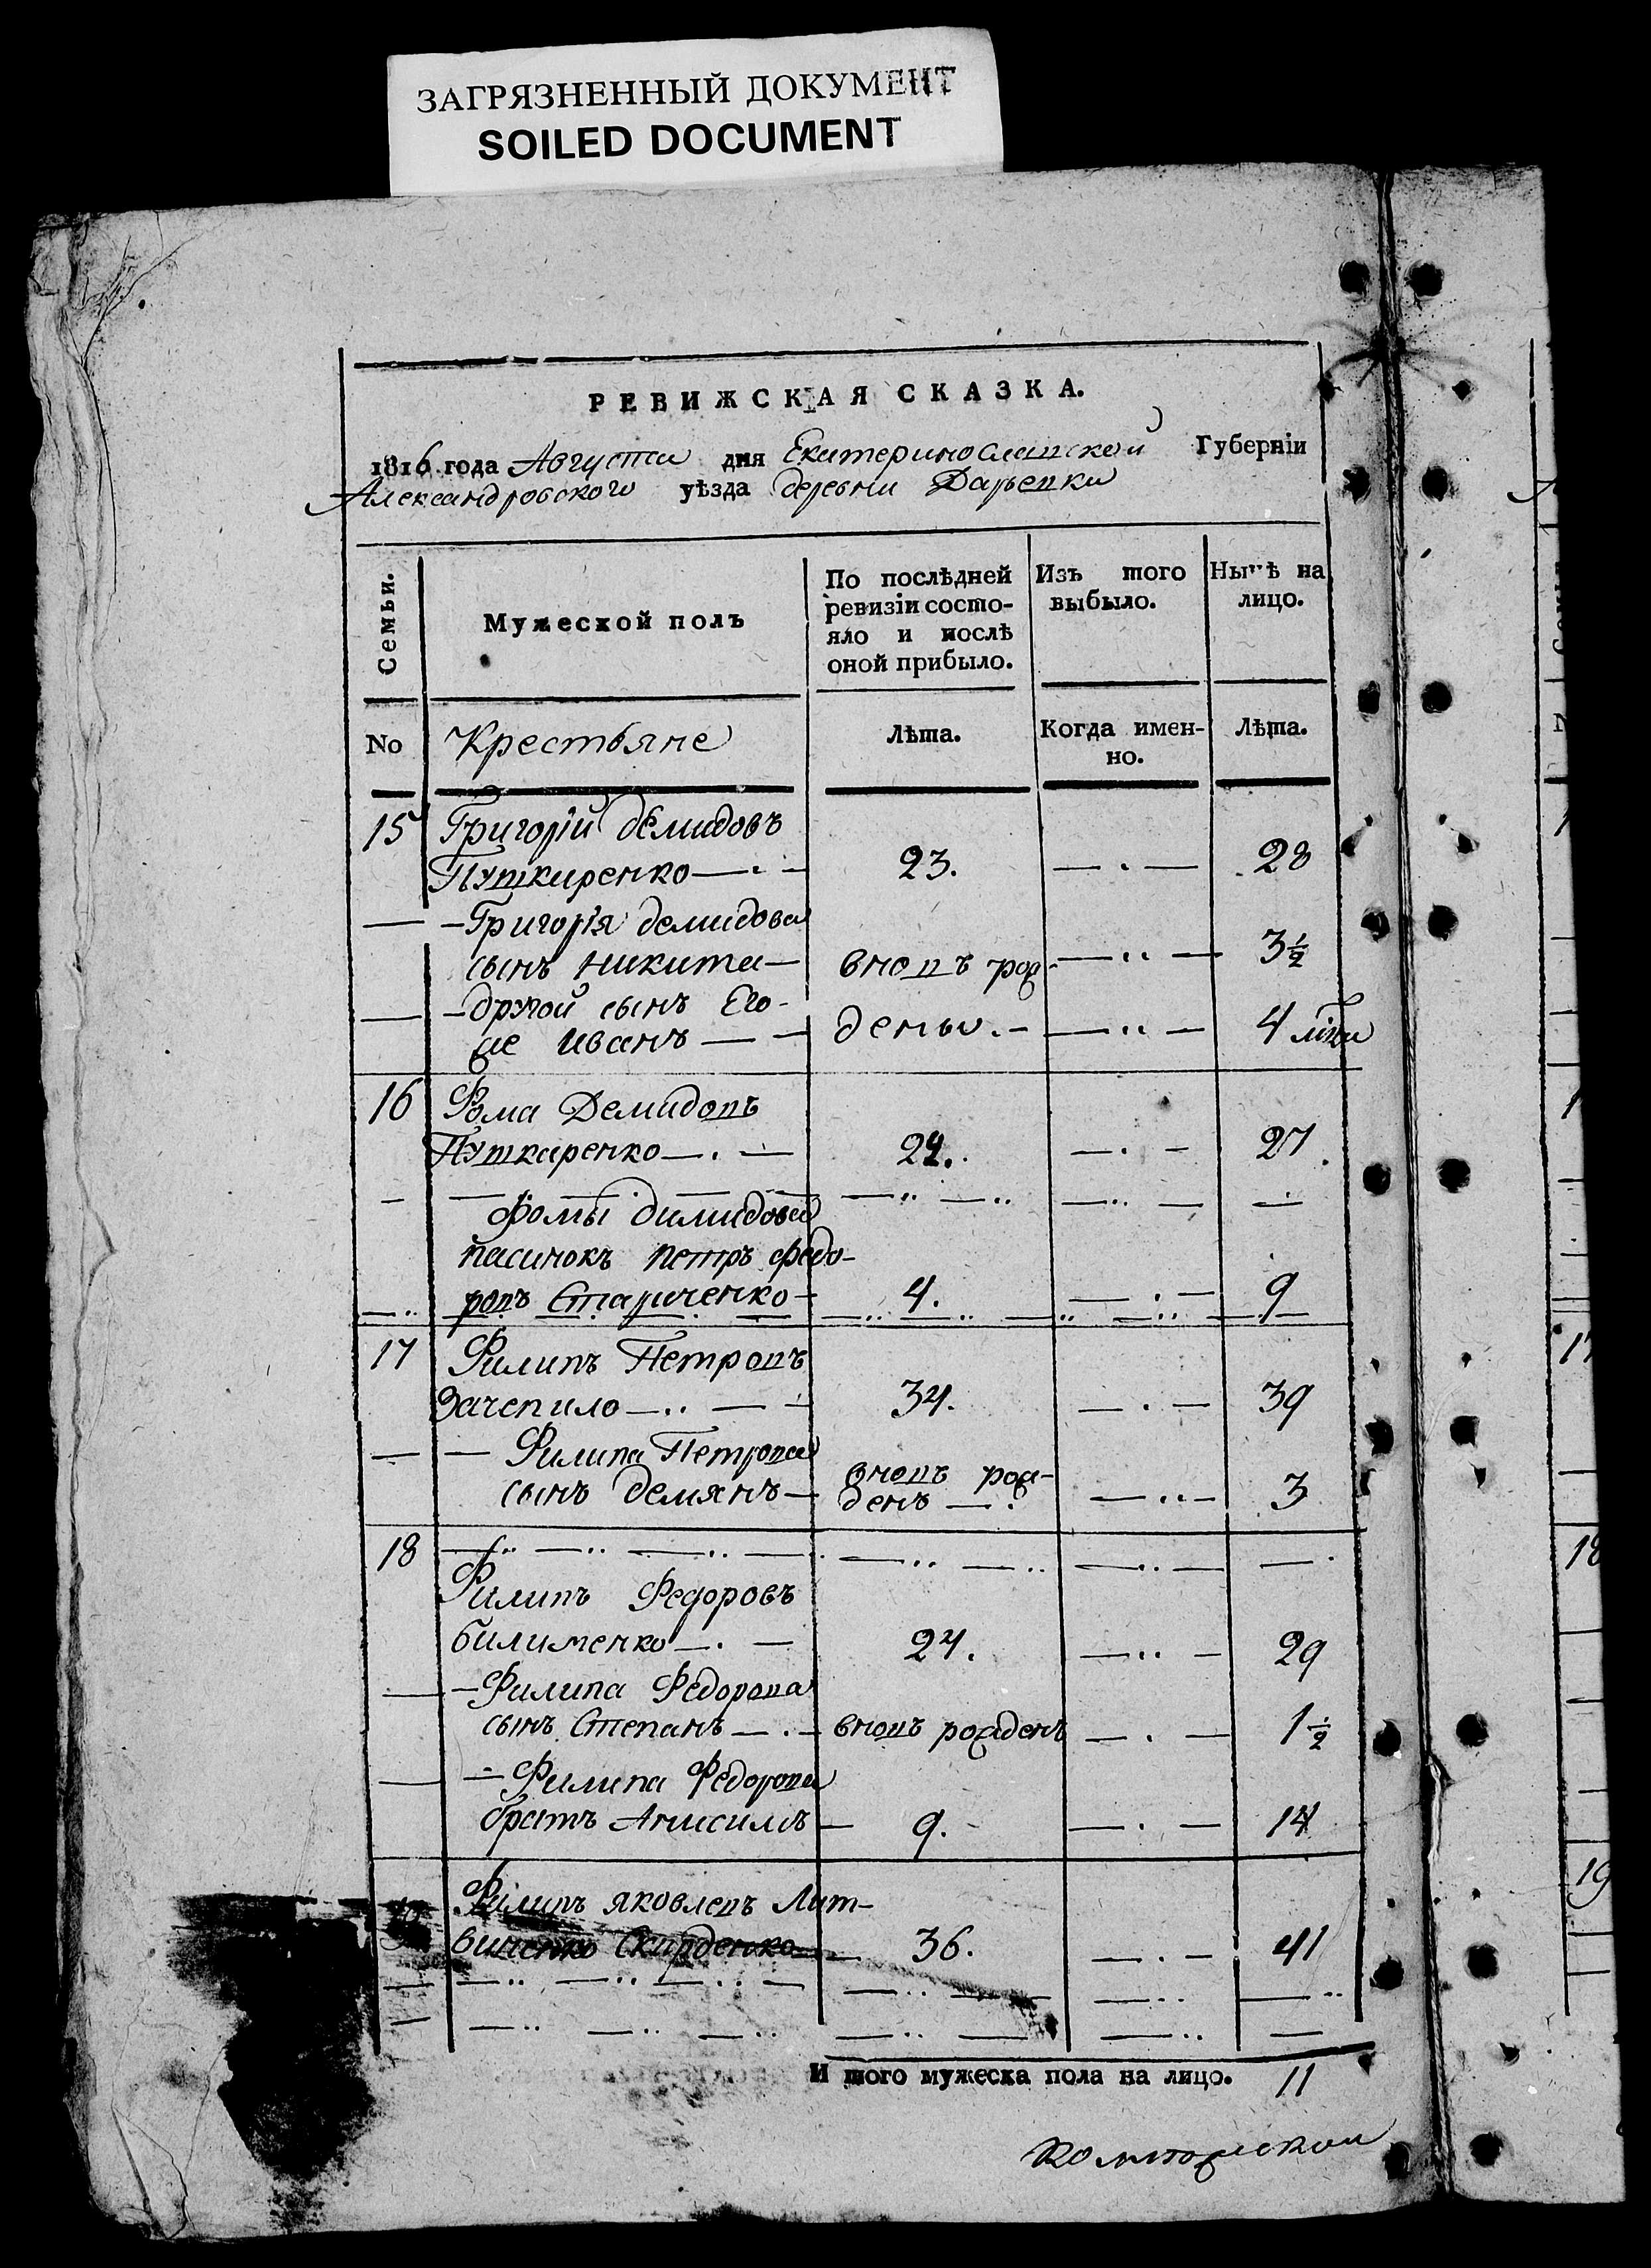 ЗАГРЯЗНЕННЫЙ ДОКУМЕНТ
SOILED DOCUMENT
РЕВИЖСКАЯ СКАЗКА.
1816 года Августа дня Екатеринославской Губерніи
Александровского уѣзда деревни Дарьевки
Семьи.
Мужеской полъ
По послѣдней
ревизіи состо-
яло и послѣ
оной прибыло.
Изъ того
выбыло.
Нынѣ на
лицо.
No
Крестьяне
Лѣта.
Когда имен-
но.
Лѣта.
15 Григорій демидовъ
Пушкиренко 23. 28
Григорія демидова
сынъ никита вновъ рож- 3½
другой сынъ Его
же иванъ дены. 4
16 Фома Демидовъ
Пушкаренко 22. 27
фомы димидова
пасинокъ петръ федо-
ровъ Стариченко 4. 9
17 Филипъ Петровъ
Зачепило 34. 39
Филипа Петрова
сынъ демянъ вновъ рож-
денъ 3
18
Филипъ Федоровъ
билименко 24. 29
Филипа Федорова
сынъ Степанъ вновъ рожденъ 1½
Филипа Федорова
братъ Анисимъ 9. 14
19 Филипъ яковлевъ Лит-
виненко Скирденко 36. 41
И того мужеска пола на лицо. 11